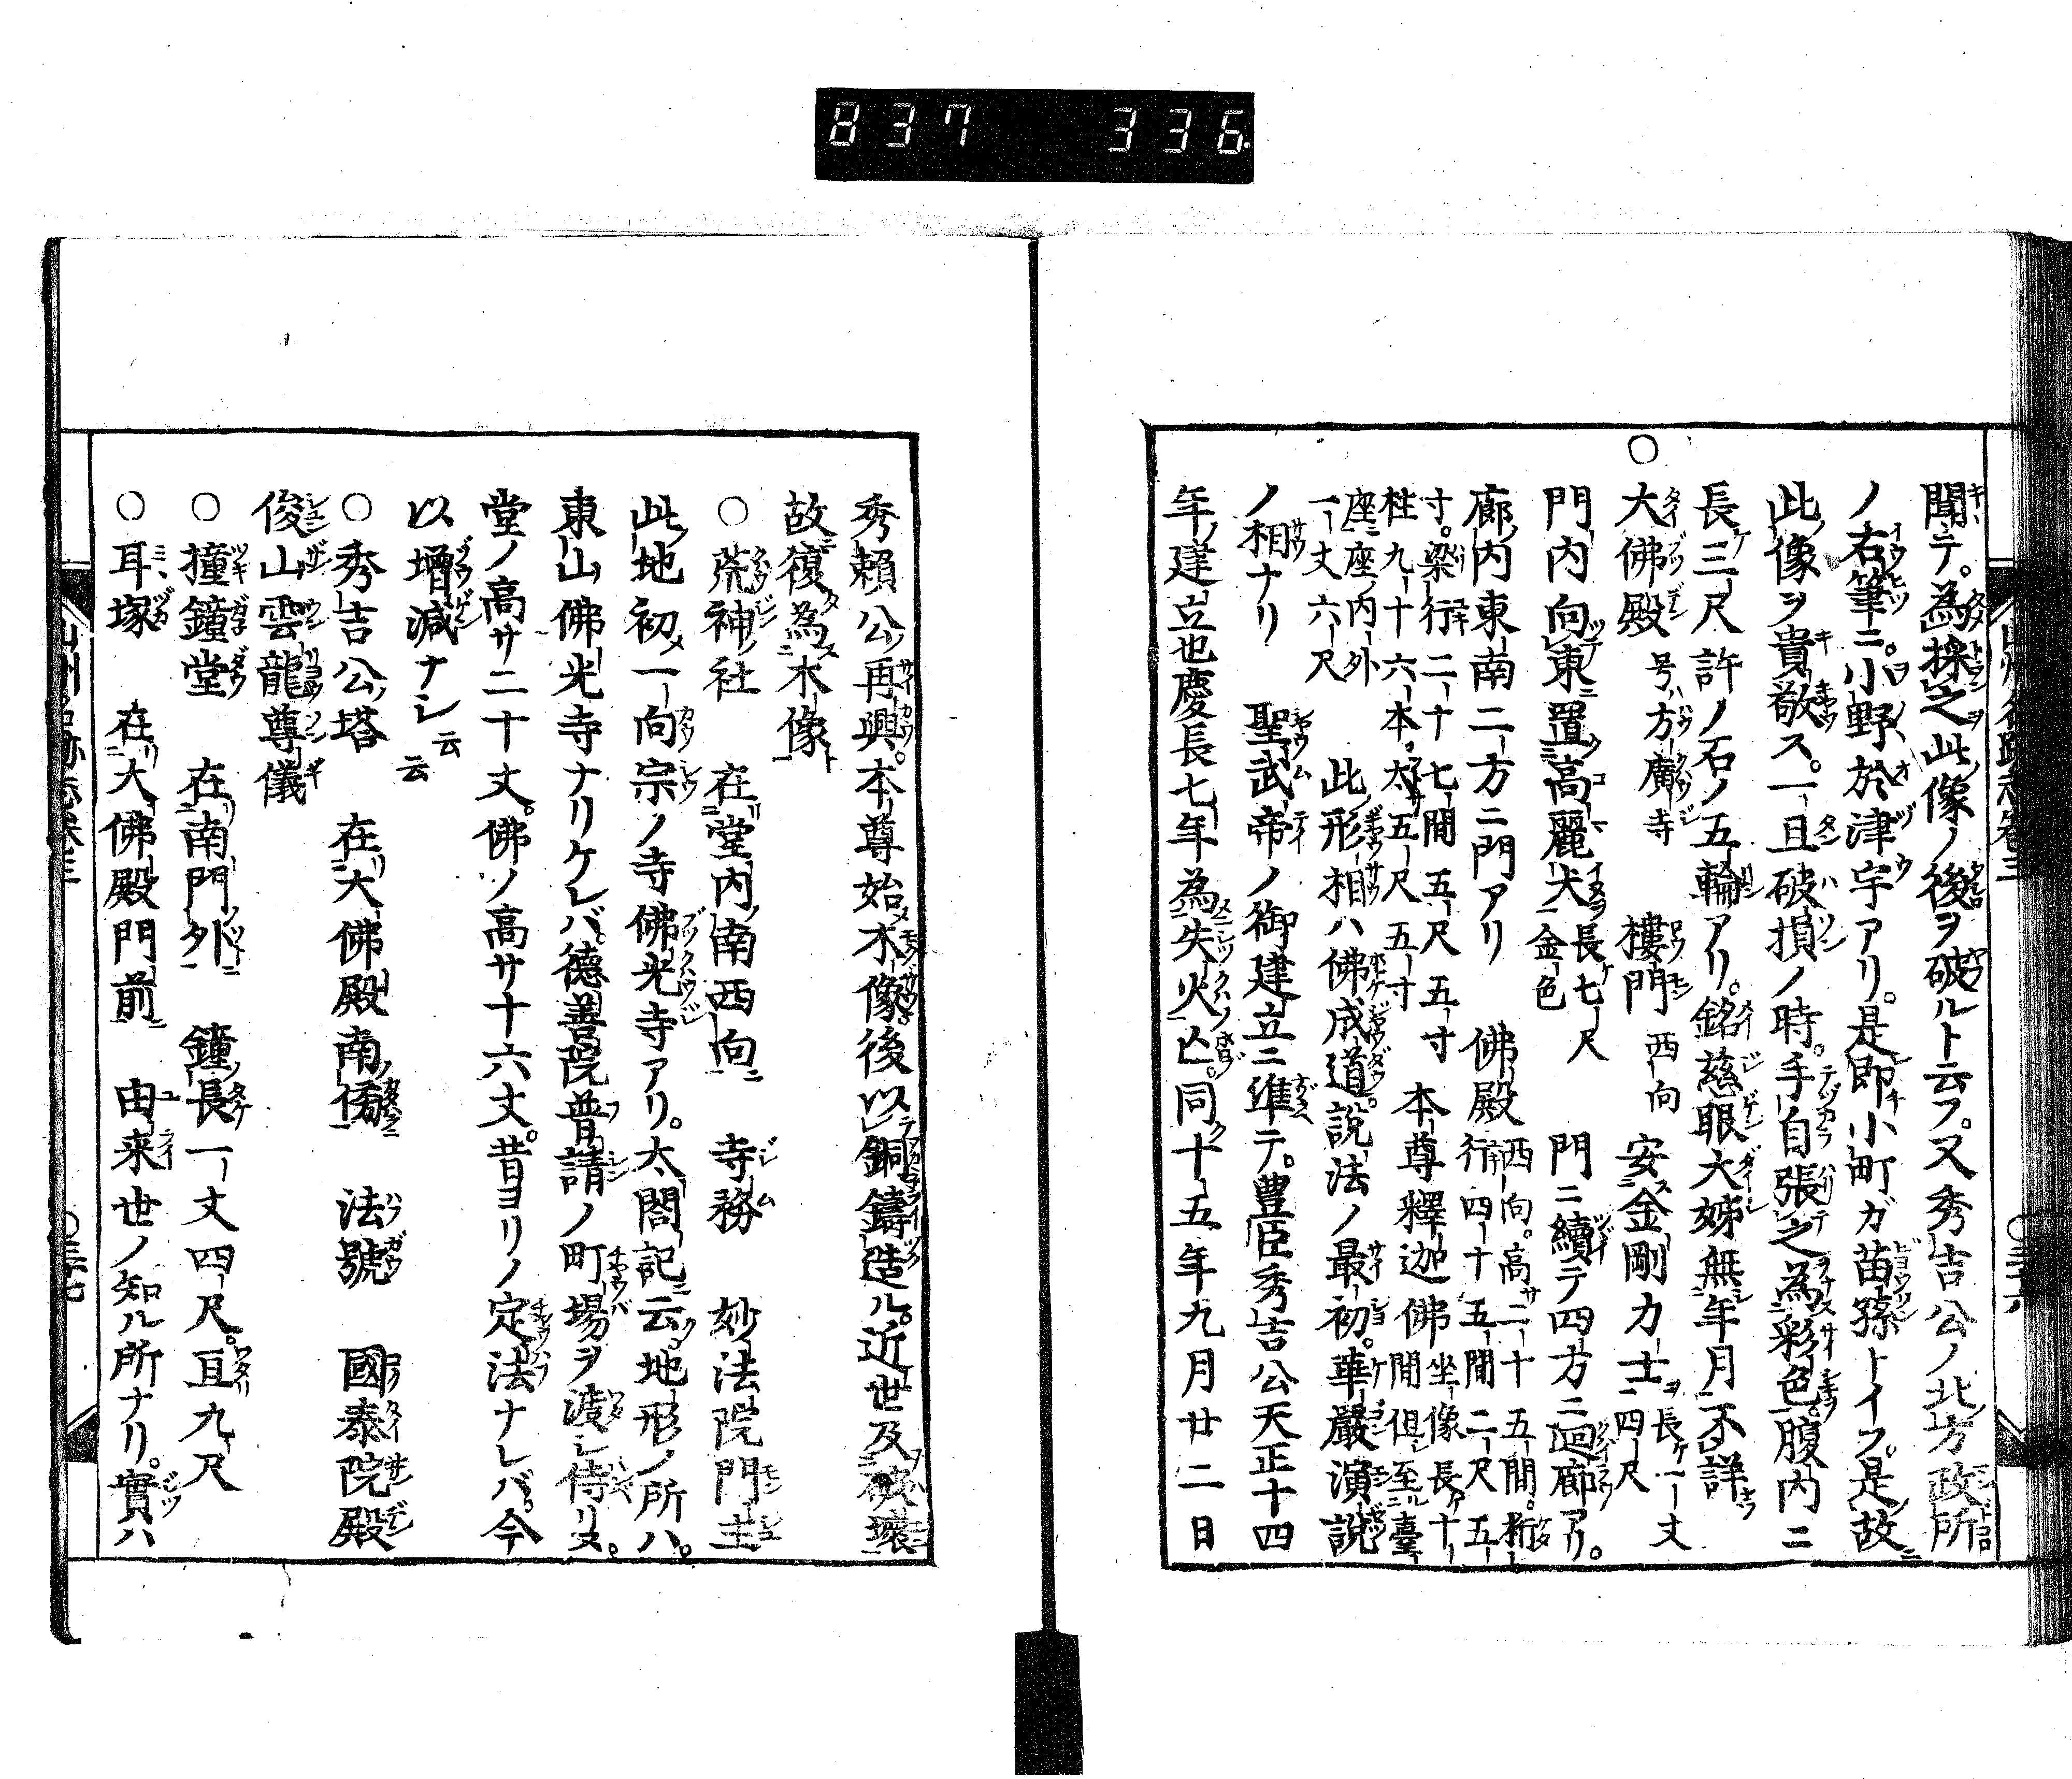 837 336
聞テ。為採之此像ノ後ヲ破ルト云フ。又秀吉公ノ北方政所
ノ右筆ニ。小野於津宇アリ。是即小町ガ苗孫トイフ。是故
此像ヲ貴敬ス。一旦破損ノ時。手自張之為彩色。腹内ニ
長三尺許ノ石ノ五輪アリ。銘慈眼大姊無年月不詳
○大佛殿 号方廣寺 樓門 西向 安金剛力士 長一丈四尺
門内向東置高麗犬 長七尺金色 門ニ續テ四方ニ廻廊アリ。
廊内東南二方ニ門アリ 佛殿 西向。高二十五間。桁行四十五間二尺五
寸。梁行二十七間五尺五寸 柱九十六本。太五尺五寸 本尊釋迦佛 坐像長十間但至臺
座座内外一丈六尺 此形相ハ佛成道説法ノ最初。華嚴演説
ノ相ナリ 聖武帝ノ御建立ニ準テ。豊臣秀吉公天正十四
年建立也慶長七年為失火亡。同十五年九月廿二日
秀頼公再興。本尊始木像。後以銅鑄造ル。近世及破壊
故復為木像
○荒神社 在堂内南西向 寺務 妙法院門主
此地初一向宗ノ寺佛光寺アリ。太閤記云。地形ノ所ハ。
東山佛光寺ナリケレバ。德善院普請ノ町場ヲ渡シ侍リヌ。
堂ノ高サ二十丈。佛ノ高サ十六丈。昔ヨリノ定法ナレバ。今
以增減ナシ云云
○秀吉公塔 在大佛殿南傍 法號 國泰院殿
俊山雲龍尊儀
○撞鐘堂 在南門外 鐘長一丈四尺。亘九尺
○耳塚 在大佛殿門前 由来世ノ知ル所ナリ。實ハ